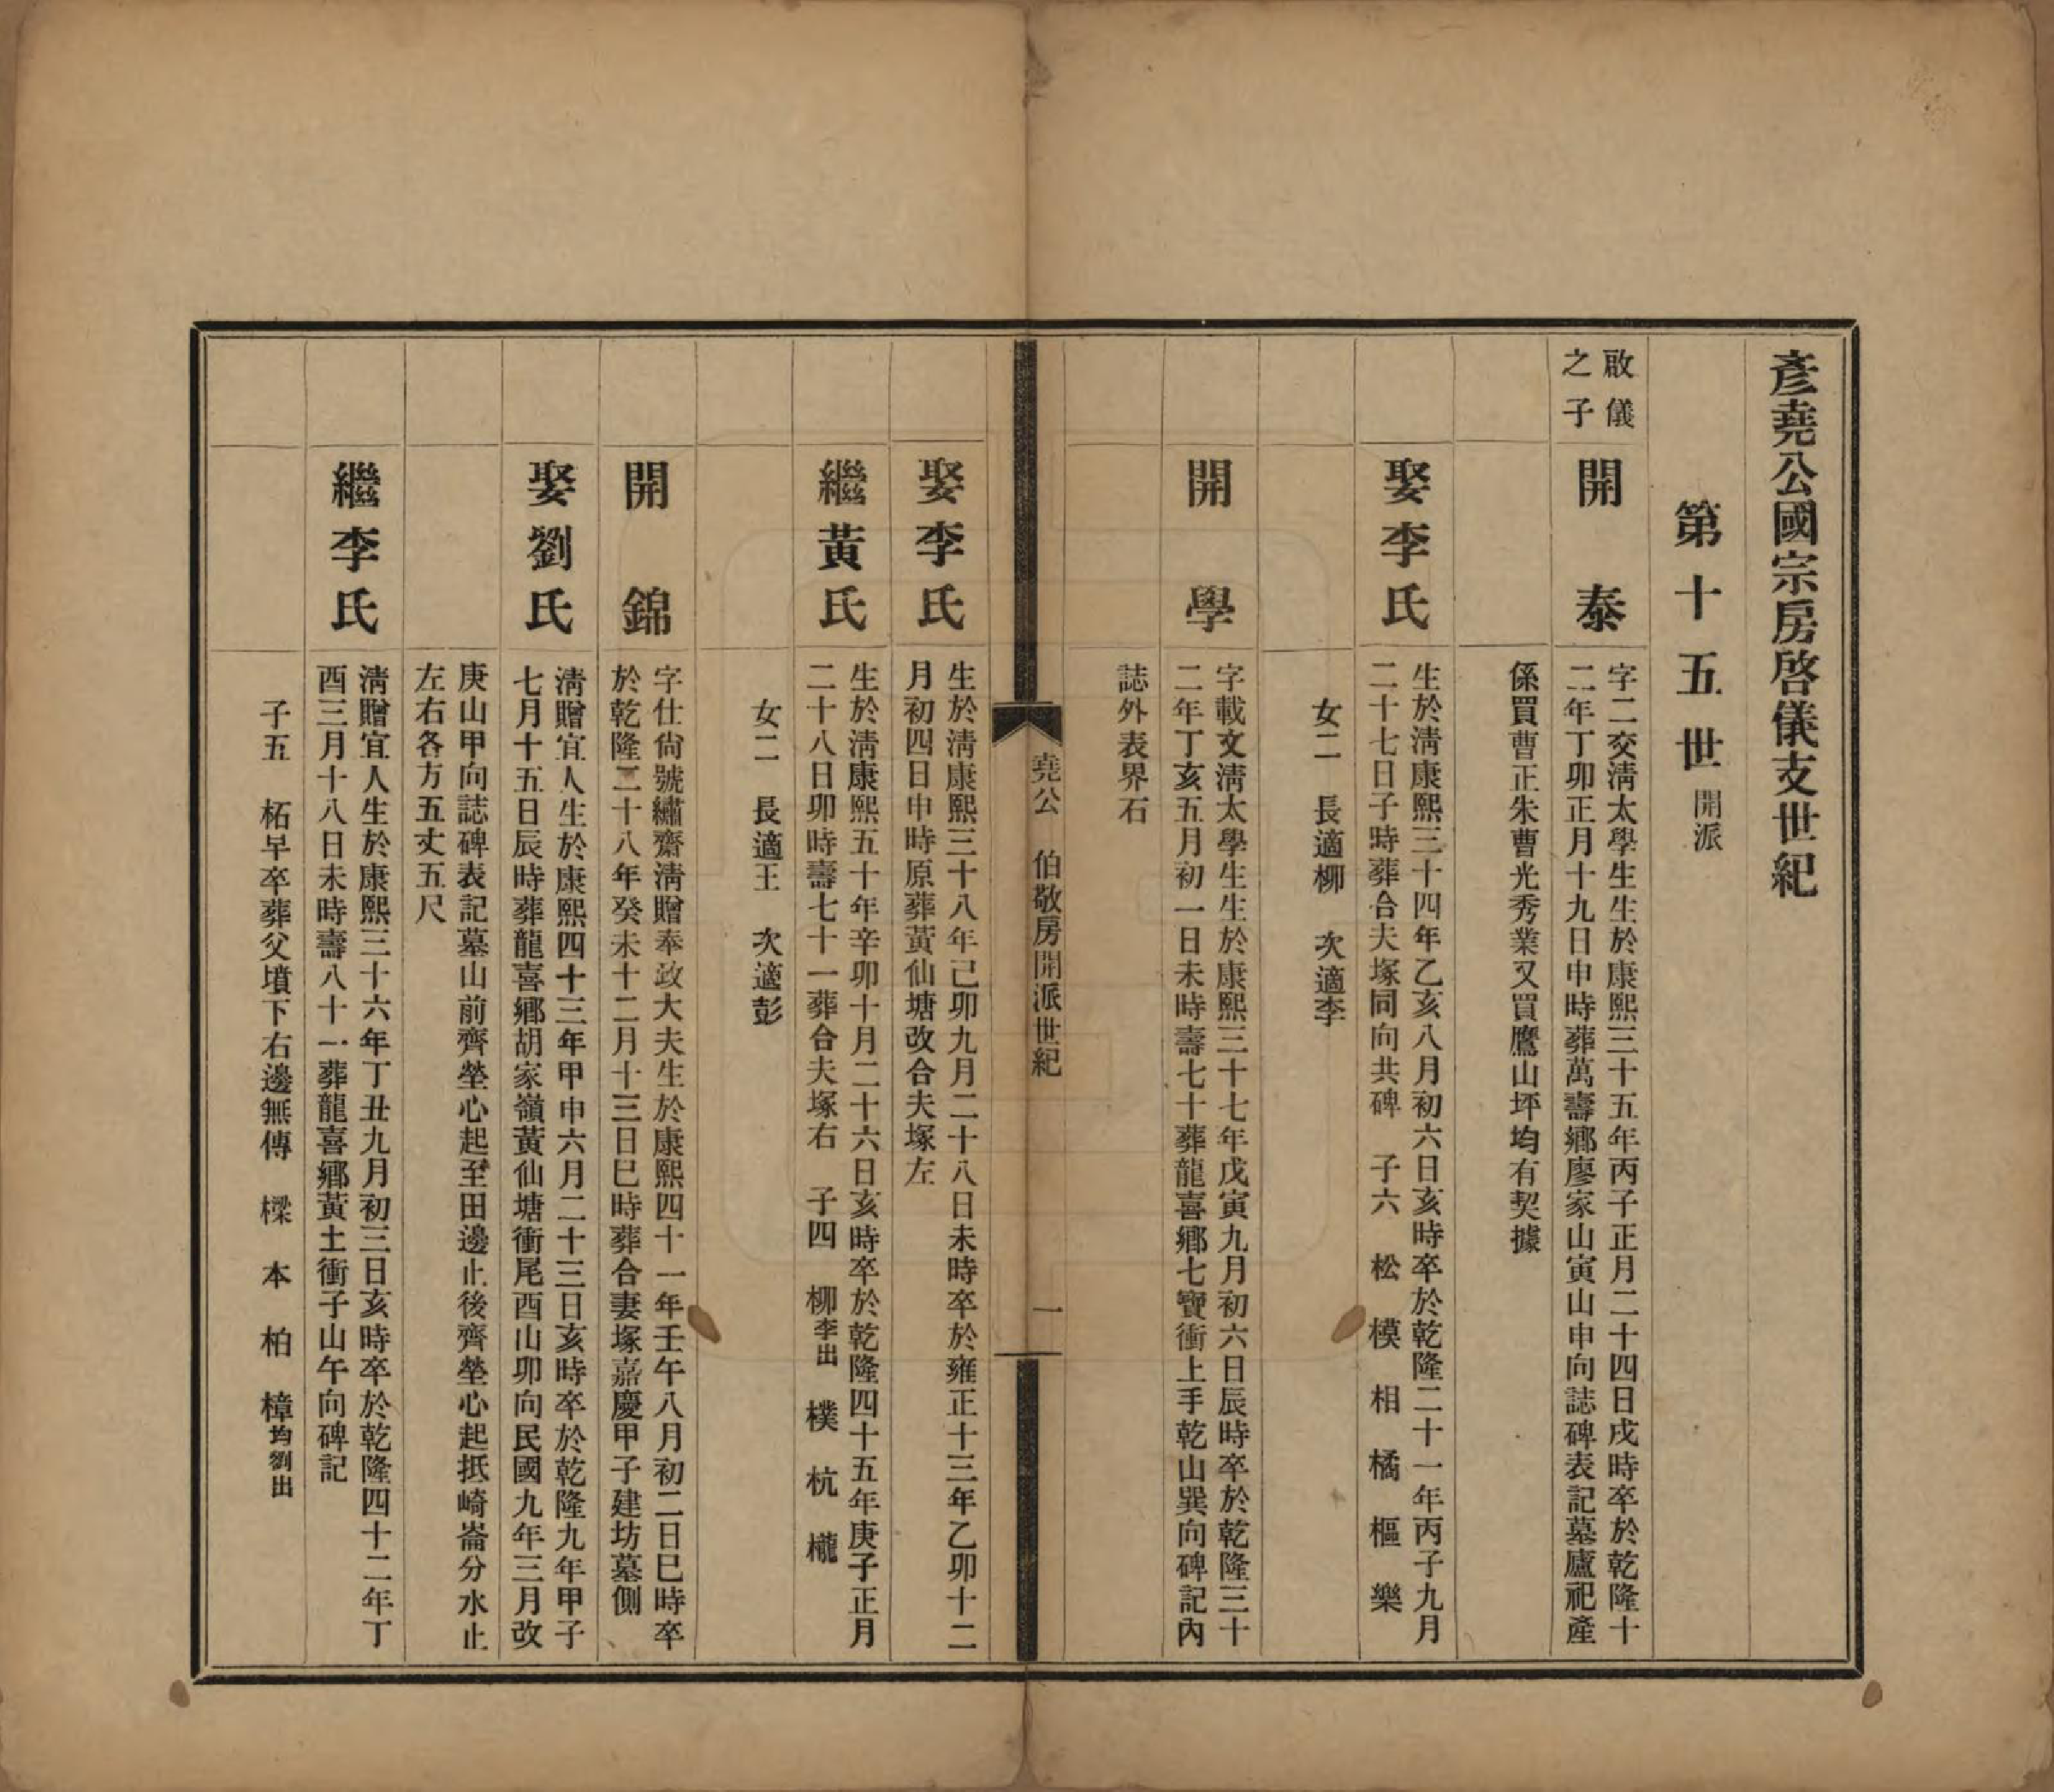 彥堯公國宗房啓儀支世紀
第十五世開派
啟儀
之子
開泰
字二交淸太學生生於康熙三十五年丙子正月二十四日戌時卒於乾隆十
二年丁卯正月十九日申時葬萬壽鄕廖家山寅山申向誌碑表記墓廬祀產
係買曹正朱曹光秀業又買鷹山坪均有契據
娶李氏
生於淸康熙三十四年乙亥八月初六日亥時卒於乾隆二十一年丙子九月
二十七日子時葬合夫塚同向共碑 子六 松 模 相 橘 樞 樂
女二 長適柳 次適李
開學
字載文淸太學生生於康熙三十七年戊寅九月初六日辰時卒於乾隆三十
二年丁亥五月初一日未時壽七十葬龍喜鄕七寶衝上手乾山巽向碑記內
誌外表界石
堯公 伯敬房開派世紀 一
娶李氏
生於淸康熙三十八年己卯九月二十八日未時卒於雍正十三年乙卯十二
月初四日申時原葬黃仙塘改合夫塚左
繼黃氏
生於淸康熙五十年辛卯十月二十六日亥時卒於乾隆四十五年庚子正月
二十八日卯時壽七十一葬合夫塚右 子四 柳李出 樸 杭 櫳
女二 長適王 次適彭
開錦
字仕尙號繡齋淸贈奉政大夫生於康熙四十一年壬午八月初二日巳時卒
於乾隆二十八年癸未十二月十三日巳時葬合妻塚嘉慶甲子建坊墓側
娶劉氏
淸贈宜人生於康熙四十三年甲申六月二十三日亥時卒於乾隆九年甲子
七月十五日辰時葬龍喜鄕胡家嶺黃仙塘衝尾酉山卯向民國九年三月改
庚山甲向誌碑表記墓山前齊塋心起至田邊止後齊塋心起抵崎崙分水止
左右各方五丈五尺
繼李氏
淸贈宜人生於康熙三十六年丁丑九月初三日亥時卒於乾隆四十二年丁
酉三月十八日未時壽八十一葬龍喜鄕黃土衝子山午向碑記
子五 柘早卒葬父墳下右邊無傳 樑 本 柏 樟均劉出